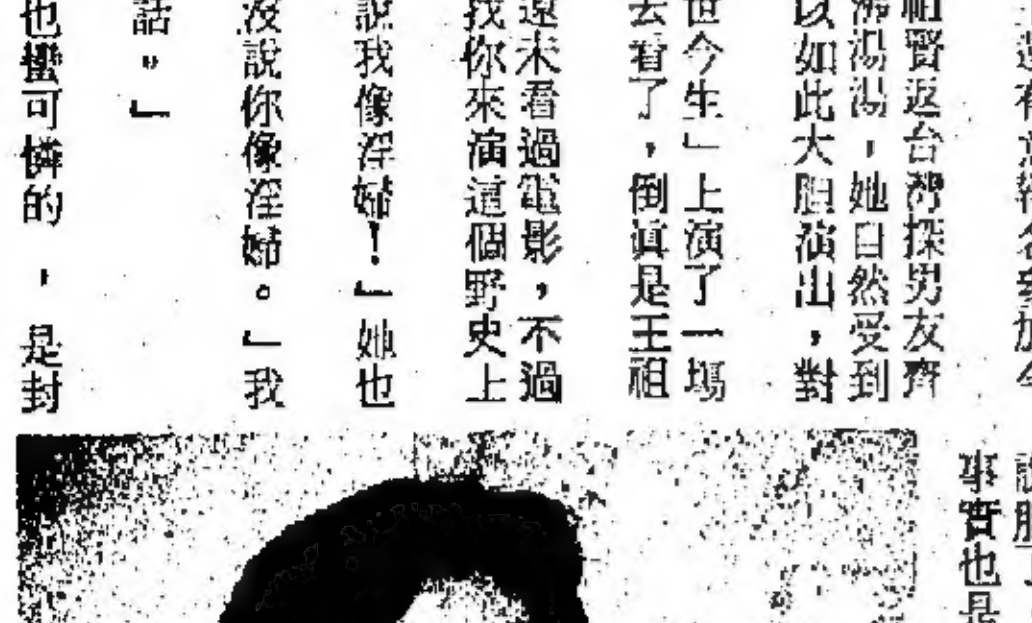 祖賢返台灣探男友齊
沸湯湯，她自然受到
以如此大胆演出，對
世今生」上演了一場
去看了，倒眞是王祖
還未看過電影，不過
找你來演這個野史上
說我像淫婦！」她也
沒說你像淫婦。」我
話。」
也蠻可憐的，是封
事實也是